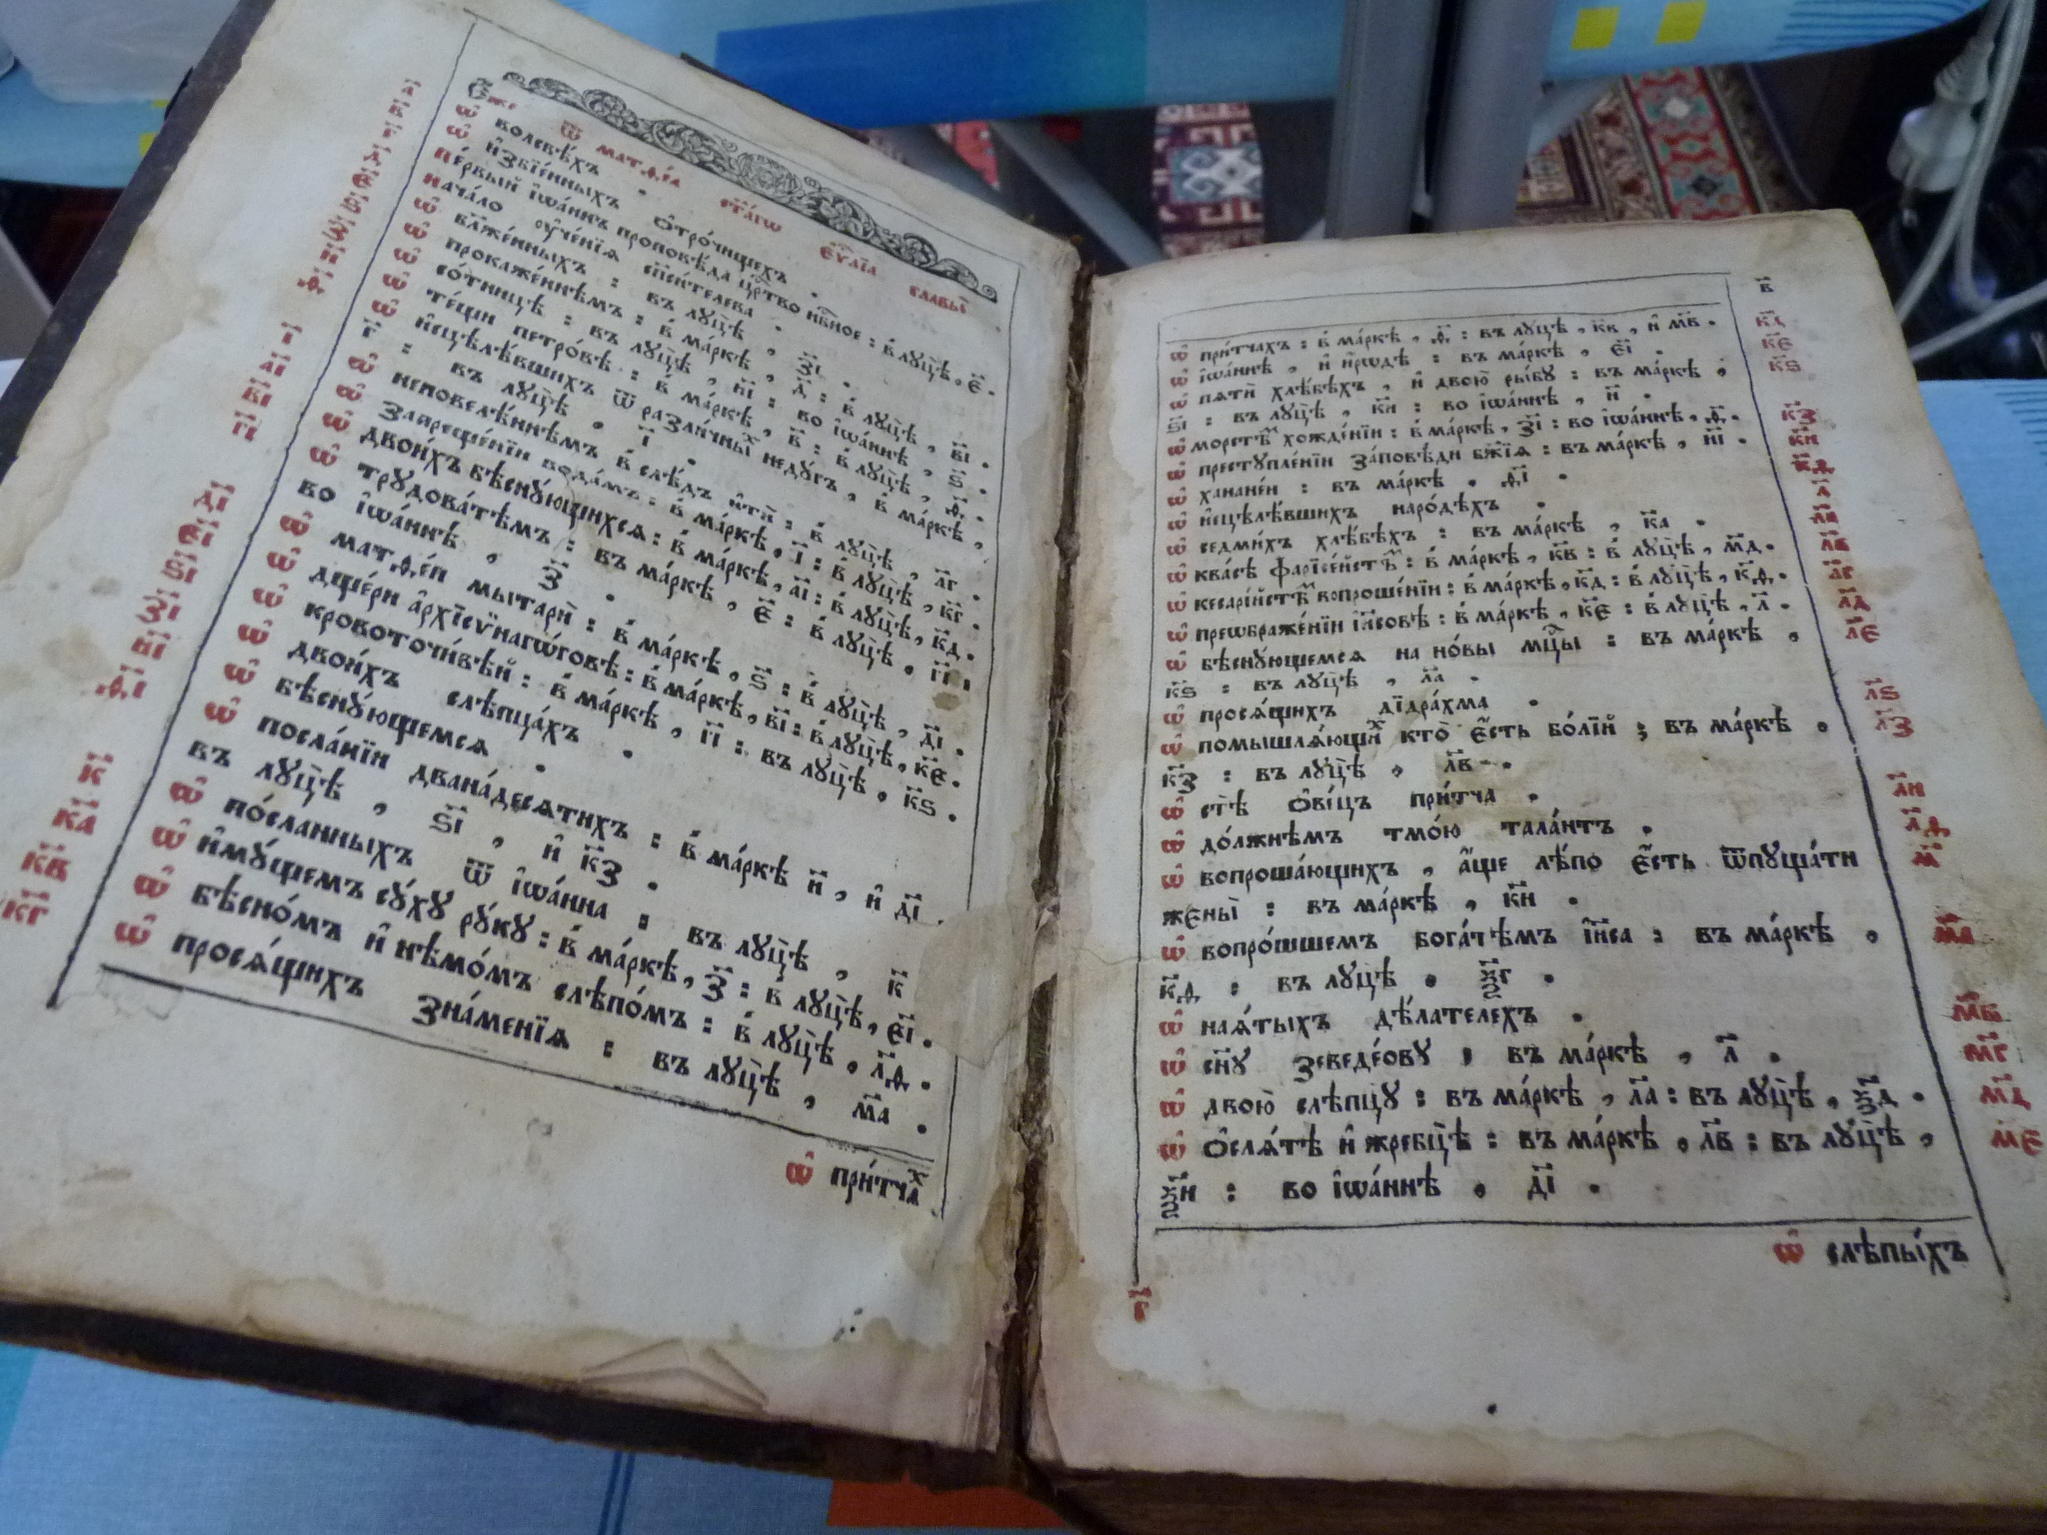 Є҆́же ѿ матѳе́а ст҃а́гѡ є҆ѵⷢ҇лїа главы̀
ѡ҆ волсвѣ́хъ .
ѡ҆ и҆збїе́нныхъ ѻ҆тро́чищехъ .
пе́рвый і҆ѡа́ннъ проповѣ́да црⷭ҇тво нбⷭ҇ное : в̾ лꙋцѣ̀ , є҃ .
нача́ло ᲂу҆че́нїѧ сп҃си́телева .
ѡ҆ бл҃же́нныхъ : въ лꙋцѣ̀ ,
ѡ҆ прокаже́ннѣмъ : в̾ ма́ркѣ , д҃ : в̾ лꙋцѣ̀ , в҃і .
ѡ҆ со́тницѣ : въ лꙋцѣ̀ , и҃і : во і҆ѡа́ннѣ , ѕ҃ .
ѡ҆ те́щи петро́вѣ : в̾ ма́ркѣ , в҃ : в̾ лꙋцѣ̀ , ѳ҃ .
ѡ҆ и҆сцѣлѣ́вшихъ ѿ разли́чныⷯ недꙋ́гъ , в̾ ма́ркѣ ,
г҃ : въ лꙋцѣ̀ , і҃ .
ѡ҆ неповелѣ́ннѣмъ в̾ слѣ́дъ и҆тѝ : в̾ лꙋцѣ̀ , л҃г .
ѡ҆ запреще́нїи вода́мъ : в̾ ма́ркѣ , і҃ : в̾ лꙋцѣ̀ , к҃г .
ѡ҆ двои́хъ бѣснꙋ́ющихсѧ : в̾ ма́ркѣ , а҃і : в̾ лꙋцѣ̀ , к҃д .
ѡ҆ трꙋдова́тѣмъ : въ ма́ркѣ , є҃ : в̾ лꙋцѣ̀ , г҃і .
во і҆ѡа́ннѣ , з҃ .
ѡ҆ матѳе́и мытарѝ : в̾ ма́ркѣ , ѕ҃ : в̾ лꙋцѣ̀ , д҃і .
ѡ҆ дще́ри а҆рхїсѵнагѡ́говѣ : в̾ ма́ркѣ , в҃і : в̾ лꙋцѣ̀ , к҃є .
ѡ҆ кровоточи́вѣй : в̾ ма́ркѣ , г҃і : въ лꙋцѣ̀ , к҃ѕ .
ѡ҆ двои́хъ слѣпца́хъ .
ѡ҆ бѣснꙋ́ющемсѧ .
ѡ҆ посла́нїи двана́десѧтихъ : в̾ ма́ркѣ и҃ , и҆ д҃і .
въ лꙋцѣ̀ , ѕ҃і , и҆ к҃з .
ѡ҆ по́сланныхъ ѿ і҆ѡа́нна : въ лꙋцѣ̀ , к҃
ѡ҆ и҆мꙋ́щемъ сꙋ́хꙋ рꙋ́кꙋ : в̾ ма́ркѣ , з҃ : в̾ лꙋцѣ̀ , є҃і .
ѡ҆ бѣсно́мъ и҆ нѣмо́мъ слѣпо́мъ : в̾ лꙋцѣ̀ , л҃ѳ .
ѡ҆ просѧ́щихъ зна́менїѧ : въ лꙋцѣ̀ , м҃а .
ѡ҆ при́тчаⷯ
в҃
ѡ҆ при́тчахъ : в̾ ма́ркѣ , ѳ҃ : въ лꙋцѣ̀ , к҃в , и҆ м҃в . к҃д
ѡ҆ і҆ѡа́ннѣ , и҆ и҆́рѡдѣ : въ ма́ркѣ , є҃і . к҃є
ѡ҆ пѧтѝ хлѣ́бѣхъ , и҆ двою̀ ры́бꙋ : въ ма́ркѣ , к҃ѕ
ѕ҃і : въ лꙋцѣ̀ , к҃и : во і҆ѡа́ннѣ , и҃ .
ѡ҆ морстѣ́мⷨ хожде́нїи : в̾ ма́ркѣ , з҃і : во і҆ѡа́ннѣ , ѳ҃ . к҃з
ѡ҆ престꙋпле́нїи за́повѣди бж҃їѧ : въ ма́ркѣ , и҃і . к҃и
ѡ҆ ханане́и : въ ма́ркѣ . ѳ҃і . к҃ѳ
ѡ҆ и҆сцѣлѣ́вшихъ наро́дѣхъ . л҃
ѡ҆ седми́хъ хлѣ́бѣхъ : въ ма́ркѣ , к҃а . л҃а
ѡ҆ ква́сѣ фарїсе́йстѣⷨ : в̾ ма́ркѣ , к҃в : в̾ лꙋцѣ̀ , м҃д . л҃в
ѡ҆ кесарі́йстѣⷨ вопроше́нїи : в̾ ма́ркѣ , к҃д : в̾ лꙋцѣ̀ , к҃ѳ . л҃г
ѡ҆ преѡбраже́нїи і҆и҃совѣ : в̾ ма́ркѣ , к҃є : в̾ лꙋцѣ̀ , л҃ . л҃д
ѡ҆ бѣснꙋ́ющемсѧ на но́вы мцⷭ҇ы : въ ма́ркѣ , л҃є
к҃ѕ : въ лꙋцѣ̀ , л҃а .
ѡ҆ просѧ́щихъ дїдра́хма . л҃ѕ
ѡ҆ помышлѧ́ющиⷯ кто̀ є҆́сть бо́лїй ; въ ма́ркѣ . л҃з
к҃з : въ лꙋцѣ̀ , л҃в .
ѡ҆ стѣ̀ ѻ҆ве́цъ при́тча . л҃и
ѡ҆ до́лжнѣмъ тмо́ю тала́нтъ . л҃ѳ
ѡ҆ вопроша́ющихъ , а҆́ще лѣ́по є҆́сть ѿпꙋща́ти м҃
жены̀ : въ ма́ркѣ , к҃и .
ѡ҆ вопро́шшемъ бога́тѣмъ і҆и҃са : въ ма́ркѣ . м҃а
к҃ѳ : въ лꙋцѣ̀ . ѯ҃г .
ѡ҆ наѧ́тыхъ дѣ́лателехъ . м҃в
ѡ҆ сн҃ꙋ зеведе́овꙋ , въ ма́ркѣ , л҃ . м҃г
ѡ҆ двою̀ слѣпцꙋ̀ : въ ма́ркѣ , л҃а : въ лꙋцѣ̀ , ѯ҃д . м҃д
ѡ҆ ѻ҆слѧ́тѣ и҆ жребцѣ̀ : въ ма́ркѣ , л҃в : въ лꙋцѣ̀ , м҃є
ѯ҃и : во і҆ѡа́ннѣ . д҃і .
ѡ҆ слѣпы́хъ